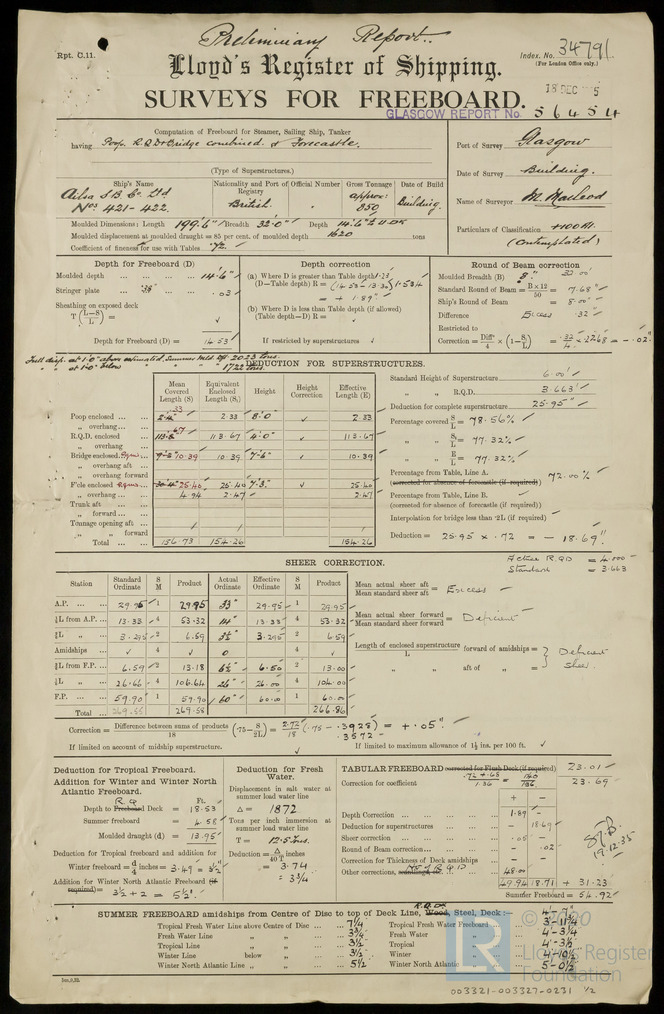 Preliminary Report.
Rpt. C.11.
Index. No. 34791.
(For London Office only.)
Lloyd's Register of Shipping.
18 DEC 5
SURVEYS FOR FREEBOARD.
GLASGOW REPORT No 56454
Computation of Freeboard for Steamer, Sailing Ship, Tanker
having Poop, R.Q.D & Bridge combined & Forecastle.
(Type of Superstructures.)
Port of Survey Glasgow
Date of Survey Building.
Name of Surveyor M. Macleod
Particulars of Classification +100A1.
(Contemplated)
Ship's Name
Nationality and Port of Registry
Official Number
Gross Tonnage
Date of Build
Ailsa S.B. Co. Ltd
Nos 421-422.
British.
approx: 850
Building.
Moulded Dimensions: Length 199'.6" Breadth 32'.0" Depth 14'.6"
Moulded displacement at moulded draught = 85 per cent. of moulded depth 1620 tons
Coefficient of fineness for use with Tables .72.
Depth for Freeboard (D)
Moulded depth ... 14'.6"
Stringer plate ... .38" .03
Sheathing on exposed deck
T (L-S/L) =
Depth for Freeboard (D) = 14.53
Depth correction
(a) Where D is greater than Table depth
(D—Table depth) R = (14.53-13.30) 1.534
= + 1.89"
(b) Where D is less than Table depth (if allowed)
(Table depth—D) R =
If restricted by superstructures
Round of Beam correction
Moulded Breadth (B) 32.00'
Standard Round of Beam = B×12/50 = 7.68"
Ship's Round of Beam = 8.00"
Difference Excess .32"
Restricted to
Correction = Diffce/4 × (1-S/L) = .32/4 × .2268 = -.02"
Full disp. at 1'.0" above estimated Summer Mld dft 2023 tons.
" " at 1'.0" below " " " 1722 tons.
DEDUCTION FOR SUPERSTRUCTURES.
Mean Covered Length (S)
Equivalent Enclosed Length (S₁)
Height
Height Correction
Effective Length (E)
Poop enclosed ... 2.33 2.33 8'.0" 2.33
" overhang ...
R.Q.D. enclosed 113.67 4'.0" 113.67
" overhang
Bridge enclosed 10.39 10.39 7'.6" 10.39
" overhang aft
" overhang forward
F'cle enclosed 25.40 25.40 7'.3" 25.40
" overhang ... 4.94 2.47 2.47
Trunk aft
" forward ...
Tonnage opening aft
" " forward
Total ... 156.73 154.26 154.26
Standard Height of Superstructure 6.00'
" " R.Q.D. 3.663'
Deduction for complete superstructure 25.95"
Percentage covered S/L = 78.56%
" " S₁/L = 77.32%
" " E/L = 77.32%
Percentage from Table, Line A. 72.00%
(corrected for absence of forecastle (if required))
Percentage from Table, Line B.
(corrected for absence of forecastle (if required))
Interpolation for bridge less than ·2L (if required)
Deduction = 25.95 × .72 = - 18.69"
Actual R.Q.D = 4.000
Standard = 3.663
SHEER CORRECTION.
Station
Standard Ordinate
S M
Product
Actual Ordinate
Effective Ordinate
S M
Product
A.P. ... 29.95 1 29.95 33" 29.95 1 29.95
⅙L from A.P. ... 13.33 4 53.32 14" 13.33 4 53.32
⅓L " 3.295 2 6.59 3½" 3.295 2 6.59
Amidships 4 0 4
⅓L from F.P. ... 6.59 2 13.18 6½" 6.50 2 13.00
⅙L " 26.66 4 106.64 26" 26.00 4 104.00
F.P. ... 59.90 1 59.90 60" 60.00 1 60.00
Total ... 269.58 266.86
Mean actual sheer aft
Mean standard sheer aft = Excess
Mean actual sheer forward
Mean standard sheer forward = Deficient
Length of enclosed superstructure/L forward of amidships =
" " aft of " =
Deficient Sheer.
Correction = Difference between sums of products/18 (·75-S/2L) = 2.72/18 (.75-.3928) = +.05"
.3572
If limited on account of midship superstructure.
If limited to maximum allowance of 1½ ins. per 100 ft.
Deduction for Tropical Freeboard.
Addition for Winter and Winter North Atlantic Freeboard.
Depth to R.Q. Deck = 18.53
Summer freeboard = 4.58
Moulded draught (d) = 13.95
Deduction for Tropical freeboard and addition for
Winter freeboard = d/4 inches = 3.49 = 3½"
Addition for Winter North Atlantic Freeboard (if required) = 3½ + 2 = 5½".
Deduction for Fresh Water.
Displacement in salt water at summer load water line
Δ = 1872
Tons per inch immersion at summer load water line
T = 12.5 tons.
Deduction = Δ/40T inches
= 3.74
= 3¾
TABULAR FREEBOARD corrected for Flush Deck (if required) 23.01
Correction for coefficient .72+.68/1.36 = 1.40/1.36 23.69
+ -
Depth Correction ... 1.89 -
Deduction for superstructures ... - 18.69
Sheer correction ... .05 -
Round of Beam correction ... - .02
Correction for Thickness of Deck amidships - -
Other corrections, 48.00
49.94 18.71 + 31.23
Summer Freeboard = 54.92
19.12.35
SUMMER FREEBOARD amidships from Centre of Disc to top of Deck Line, Wood, Steel, Deck:— 4'-7"
Tropical Fresh Water Line above Centre of Disc ... 7¼
Fresh Water Line " " ... 3¾
Tropical Line " " ... 3½
Winter Line below " ... 3½
Winter North Atlantic Line " " ... 5½
Tropical Fresh Water Freeboard ... 3'-11¾
Fresh Water " ... 4'-3¼
Tropical " ... 4'-3½
Winter " ... 4'-10½
Winter North Atlantic " ... 5'-0½
© 2020
LR
Lloyd's Register
Foundation
003321-003327-0231 1/2